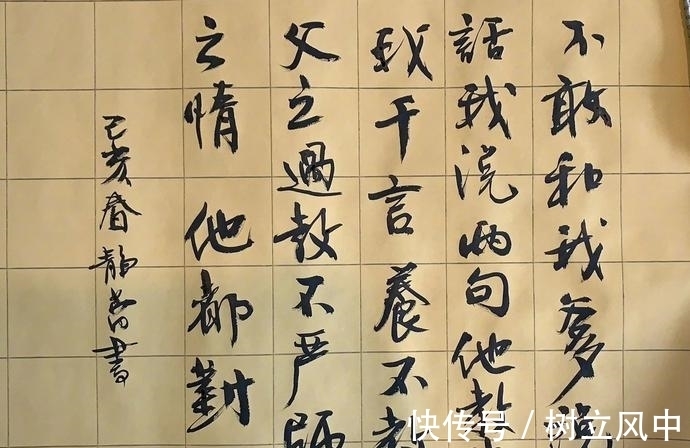 不敢和我爹
話我説两句他教
我千言養不教
父之過教不严師
之情他都對
己亥春静書
快传号 / 树立风中